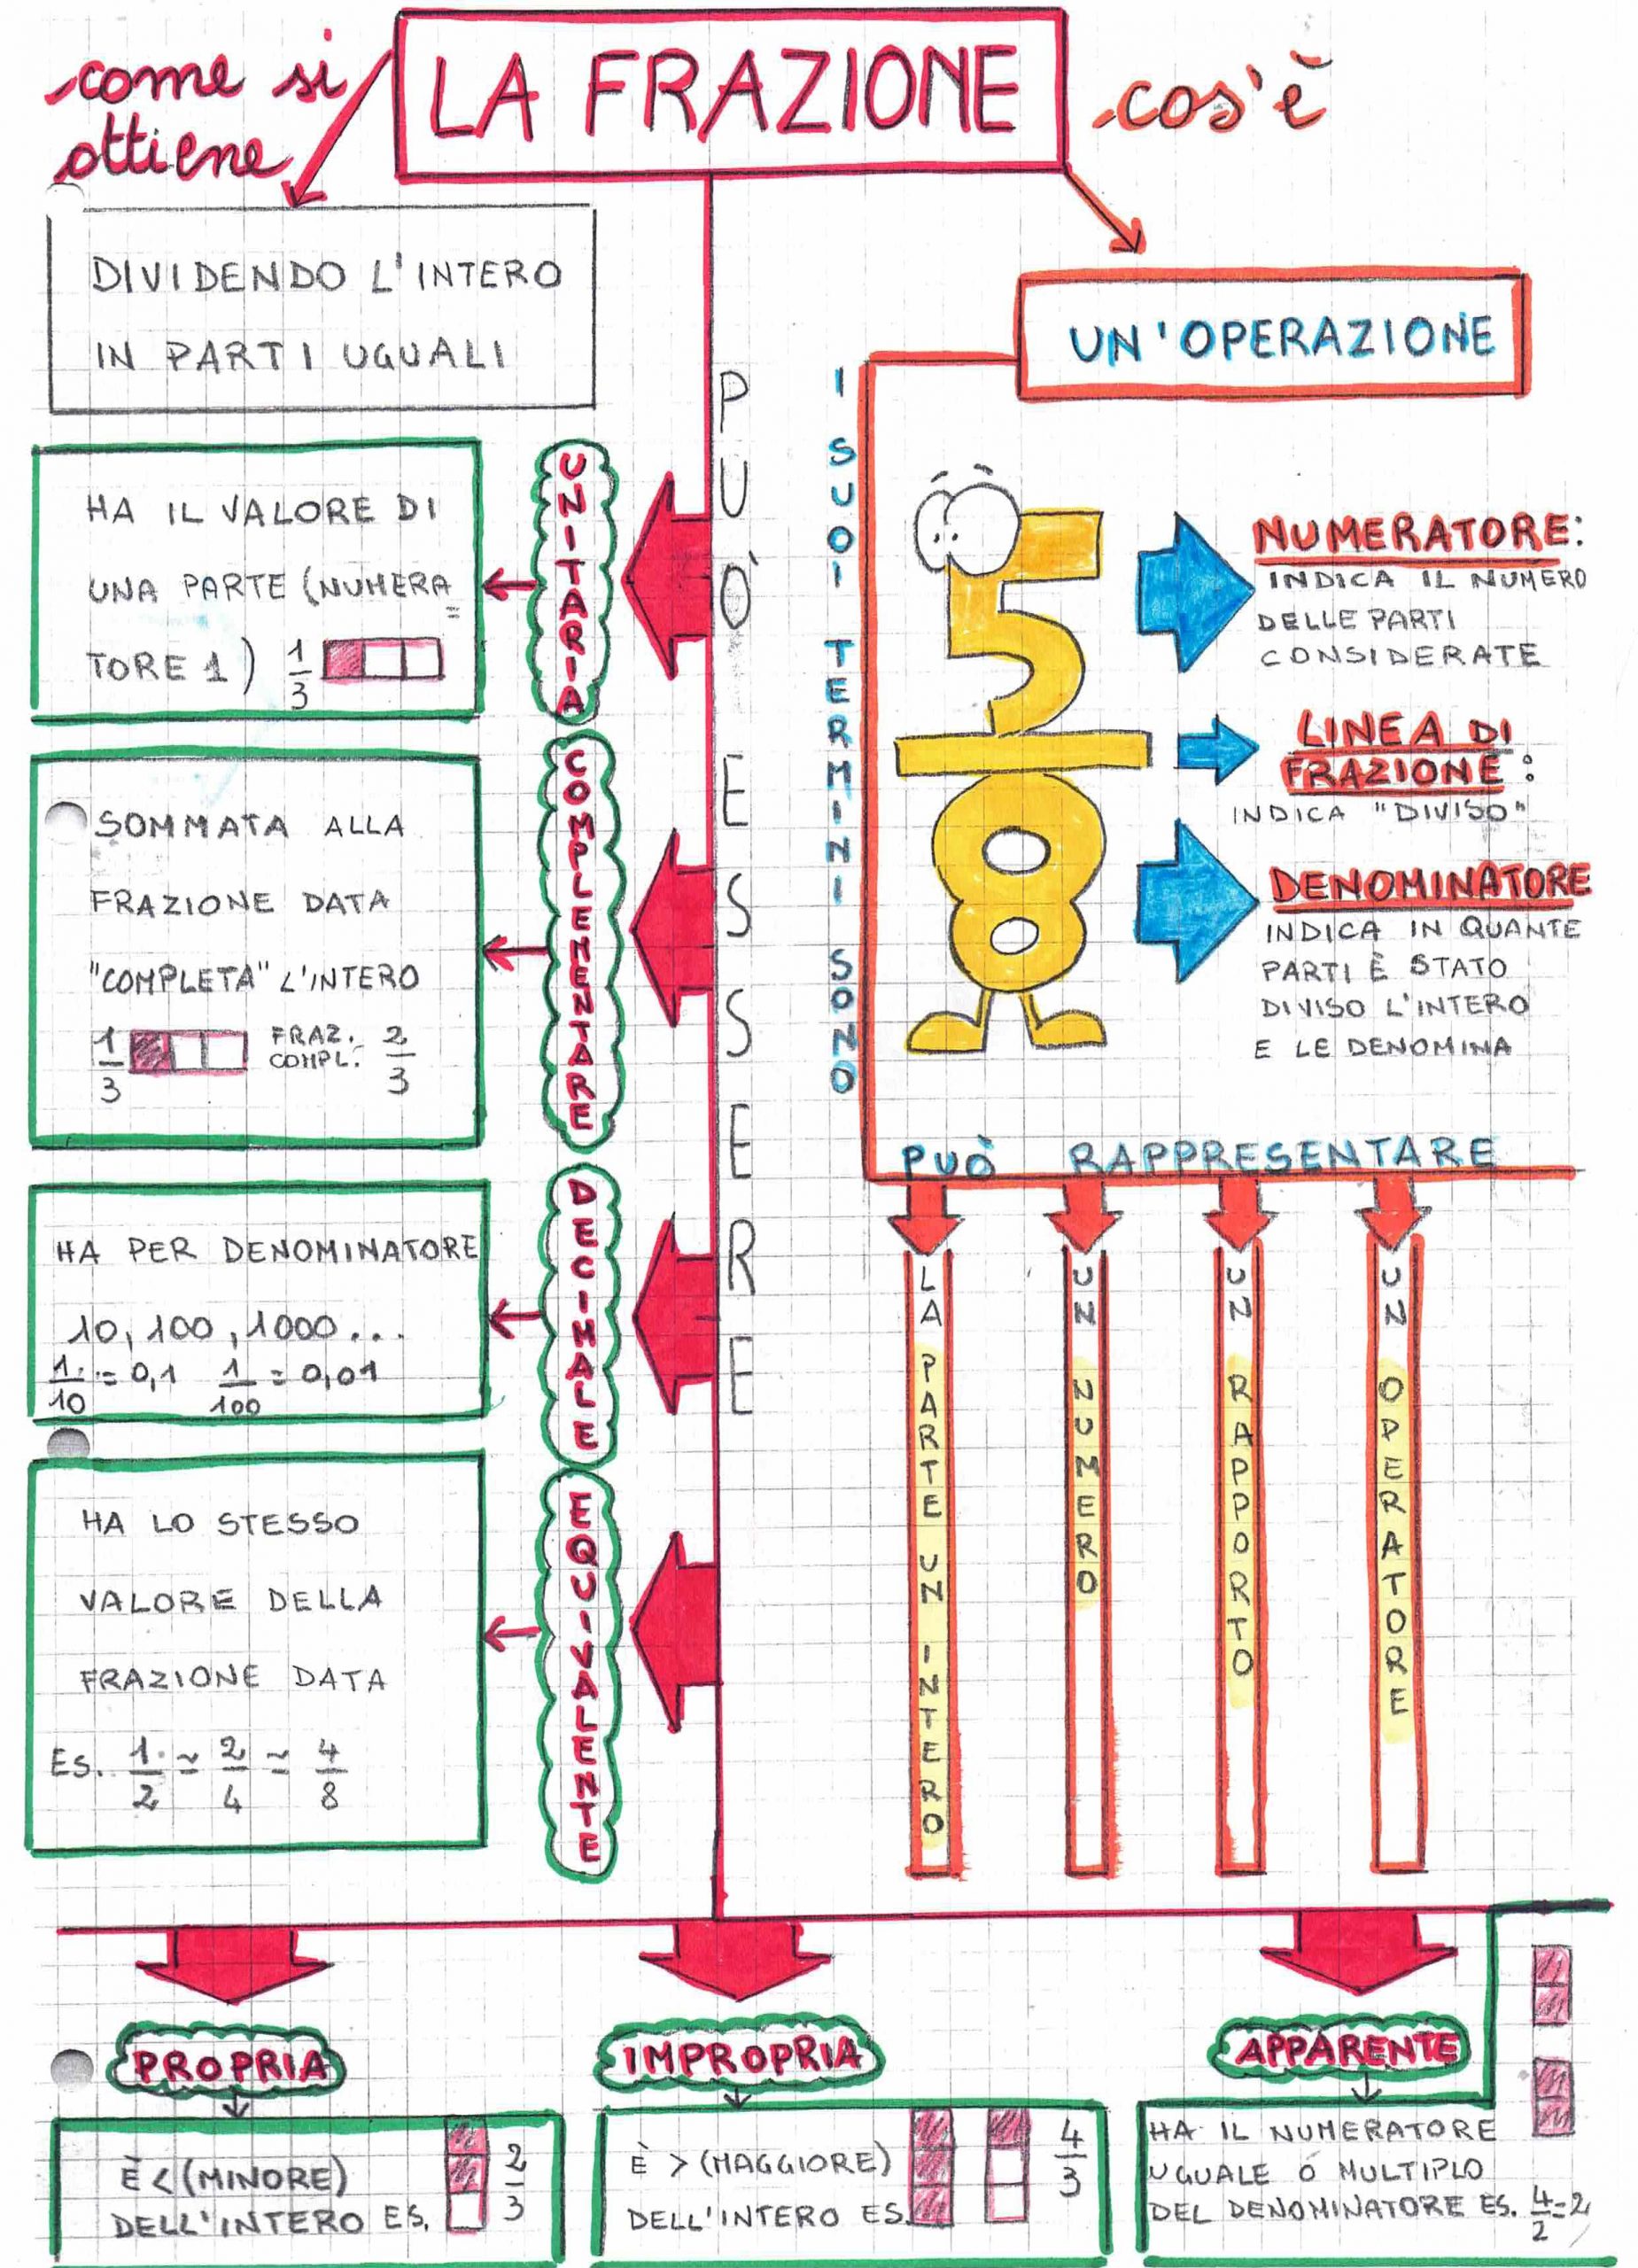 come si
ottiene
LA FRAZIONE
cos'è
DIVIDENDO L'INTERO
IN PARTI UGUALI
UN'OPERAZIONE
I SUOI TERMINI SONO
5
8
NUMERATORE:
INDICA IL NUMERO
DELLE PARTI
CONSIDERATE
LINEA DI
FRAZIONE:
INDICA "DIVISO"
DENOMINATORE
INDICA IN QUANTE
PARTI È STATO
DIVISO L'INTERO
E LE DENOMINA
PUÒ RAPPRESENTARE
LA PARTE UN INTERO
UN NUMERO
UN RAPPORTO
UN OPERATORE
PUÒ ESSERE
UNITARIA
HA IL VALORE DI
UNA PARTE (NUMERA=
TORE 1) 1/3
COMPLEMENTARE
SOMMATA ALLA
FRAZIONE DATA
"COMPLETA" L'INTERO
1/3 FRAZ. COMPL. 2/3
DECIMALE
HA PER DENOMINATORE
10, 100, 1000...
1/10 = 0,1 1/100 = 0,01
EQUIVALENTE
HA LO STESSO
VALORE DELLA
FRAZIONE DATA
ES. 1/2 ≃ 2/4 ≃ 4/8
PROPRIA
È < (MINORE)
DELL'INTERO ES. 2/3
IMPROPRIA
È > (MAGGIORE)
DELL'INTERO ES. 4/3
APPARENTE
HA IL NUMERATORE
UGUALE O MULTIPLO
DEL DENOMINATORE ES. 4/2=2